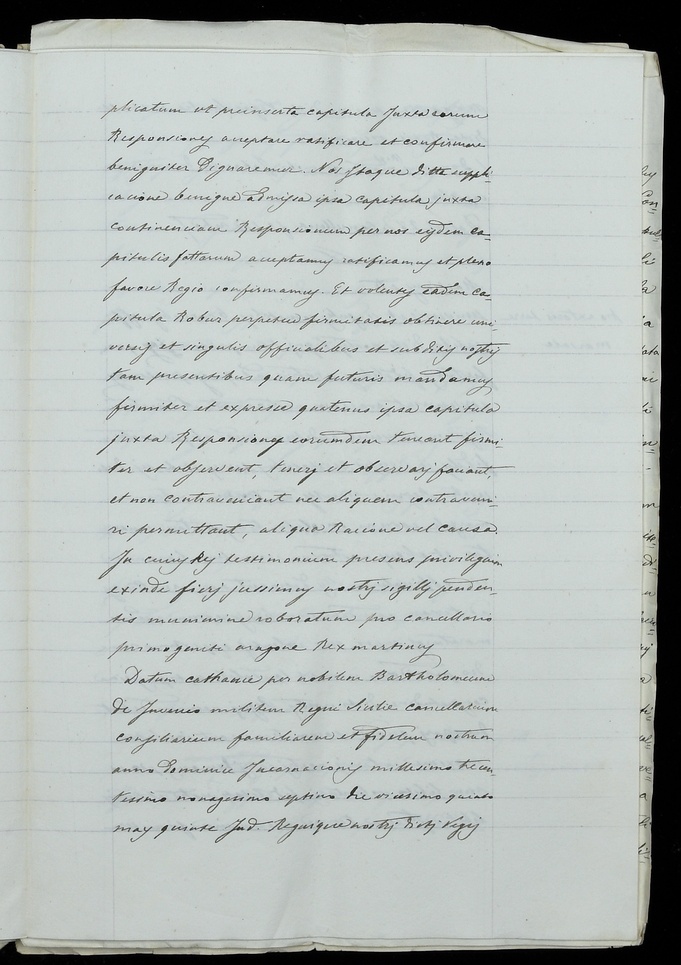 plicatum ut preinserta capitula Juxta eorum
Responsiones acceptare ratificare et confirmare
beniguiter Dignaremur. Nos Itaque ditta suppli-
cacione benigne admissa ipsa capitula juxta
continenciam Responsionum per nos eisdem ca-
pitulis fattarum acceptamus ratificamus et pleno
favore Regio confirmamus. Et volentes eadem ca-
pitula Robur perpetue firmitatis obtinere uni-
versis et singulis officialibus et subditis nostris
tam presentibus quam futuris mandamus
firmiter et expresse quatenus ipsa capitula
juxta Responsiones eorumdem teneant firmi-
ter et observent, teneri et observari faciant,
et non contraveniant nec aliquem contraveni-
ri permittant, aliqua Racione vel causa.
In cuius Rej testimonium presens privilegium
exinde fierj jussimus nostrj sigillj penden-
tis munimine roboratum pro cancellario
primogeniti aragone Rex martinus
Datum cathanie per nobilem Bartholomeum
de Juvenio militem Regni Sicilie cancellarium
consiliarium familiarem et fidelem nostrum
anno Dominice Incarnacionis millesimo trecen-
tessimo nonagesimo septimo die vicesimo quinto
may quinte Ind. Regnique nostrj dictj Regis